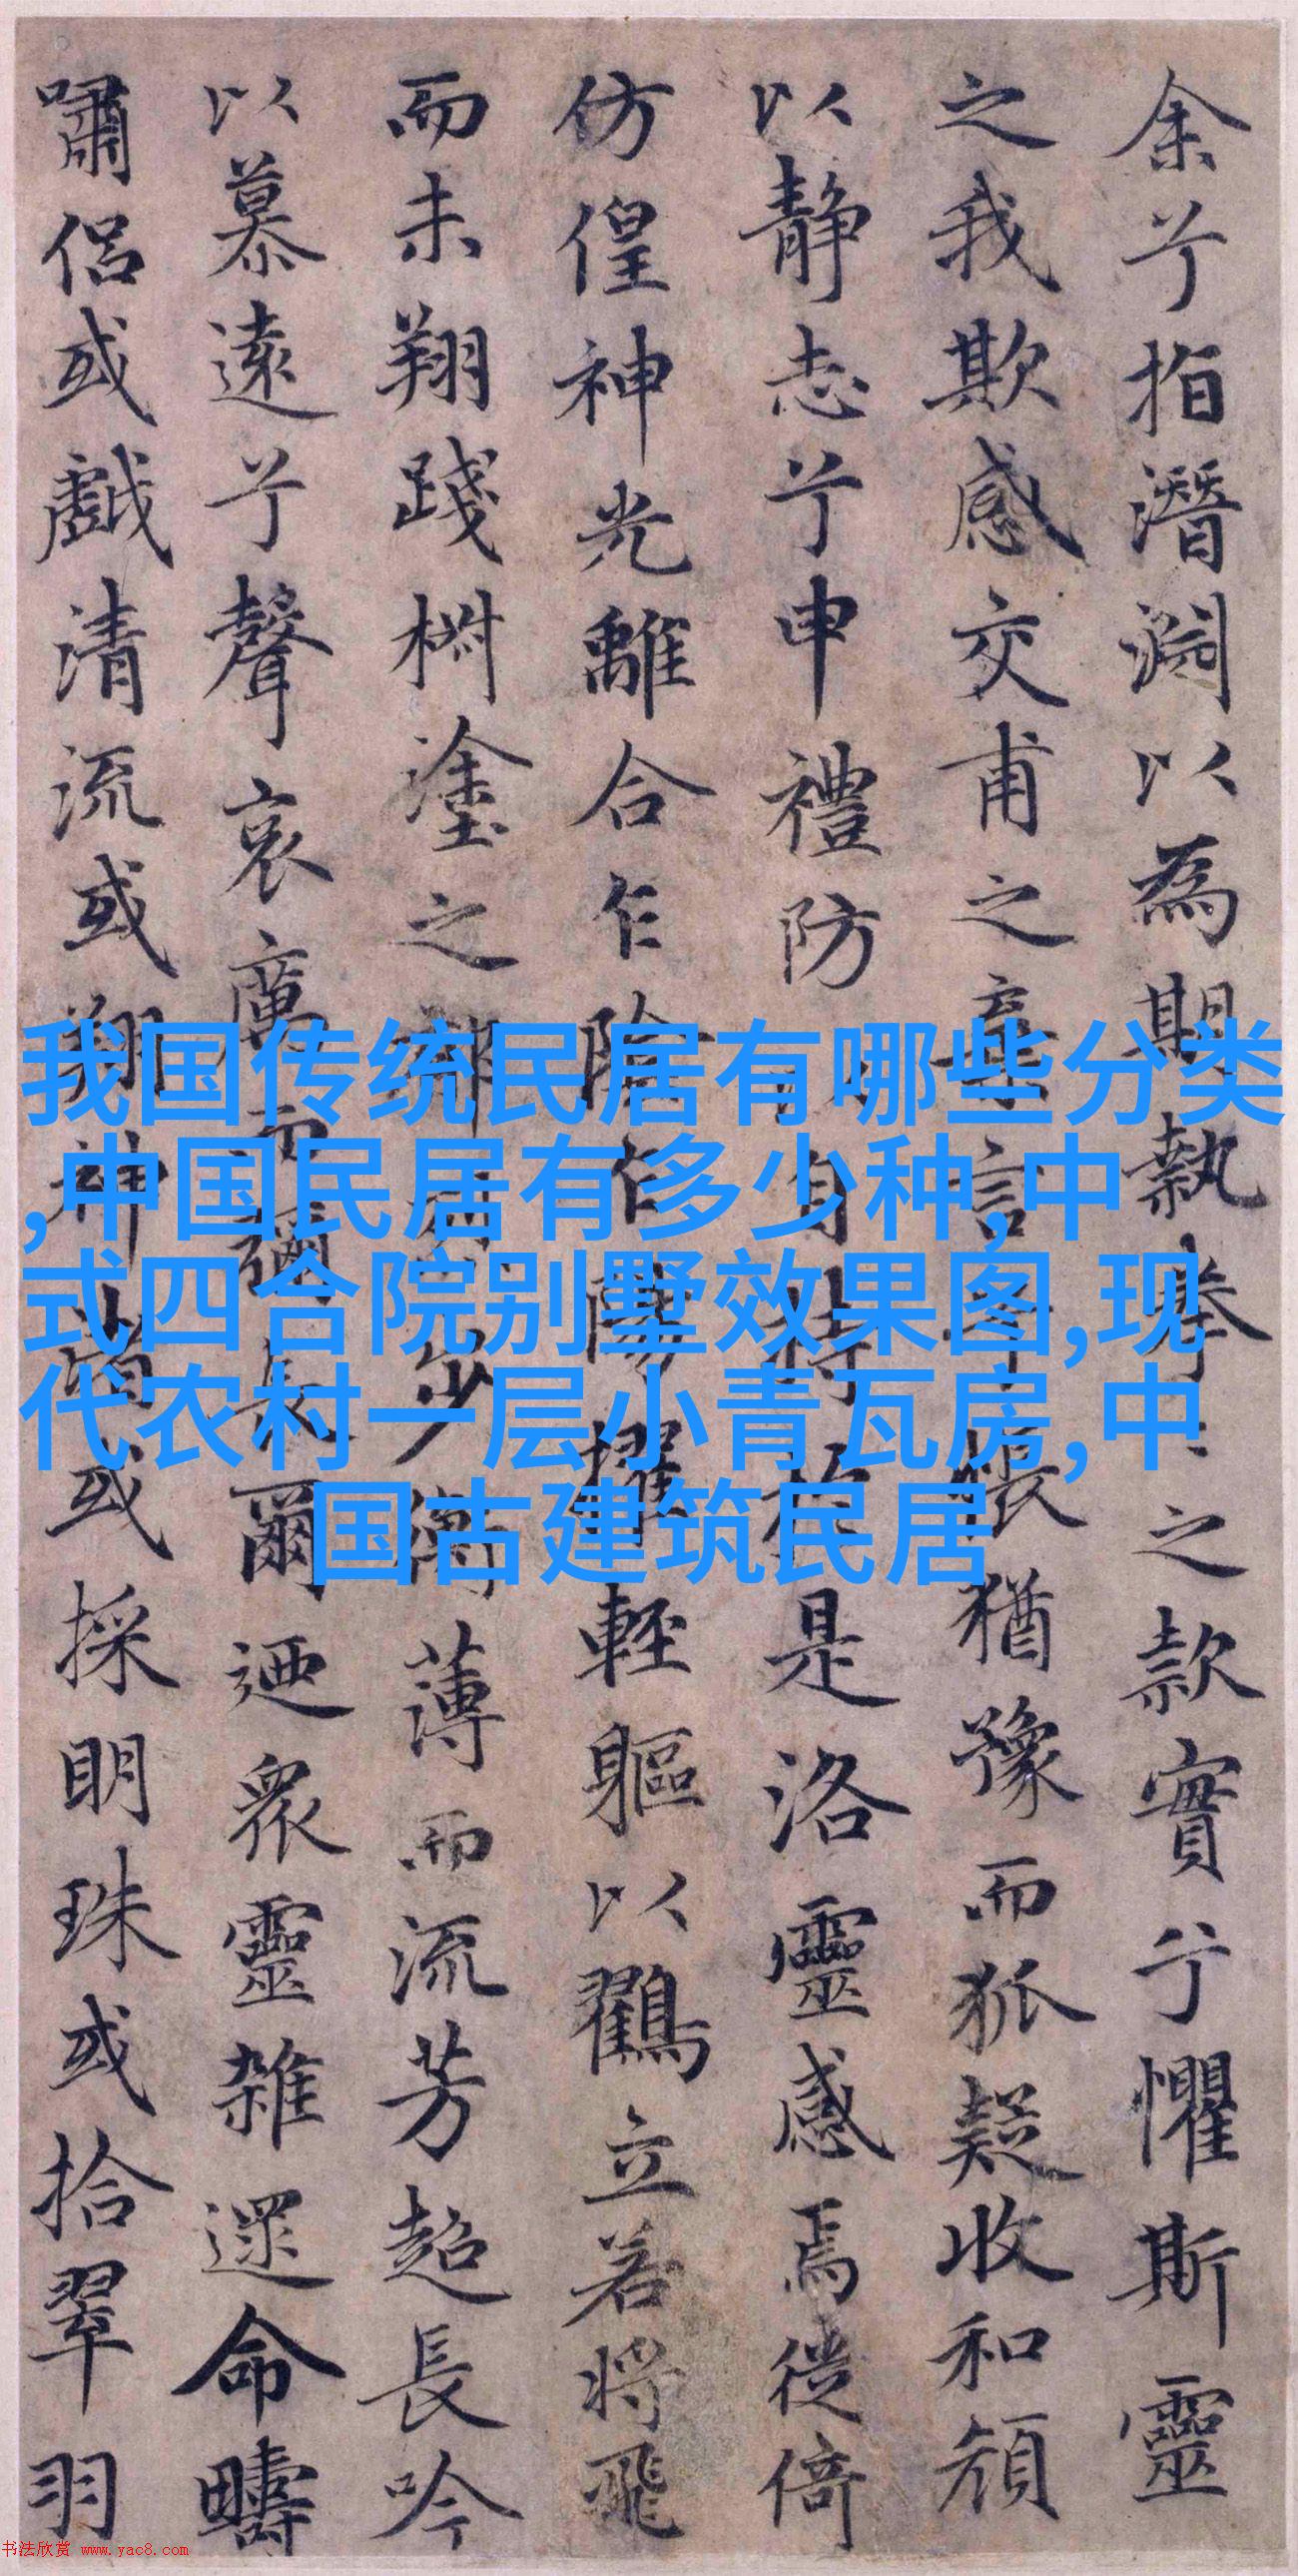 余兮指潛淵以為期執眷〻之款實兮懼斯靈
之我欺感交甫之棄言兮悵猶豫而狐疑收和顏
以靜志兮申禮防以自持於是洛靈感焉徙倚
仿偟神光離合乍陰乍陽擢輕軀以鶴立若將飛
而未翔踐椒塗之郁烈步蘅薄而流芳超長吟
以慕遠兮聲哀厲而彌長爾迺衆靈雜遝命疇
嘯侶或戲清流或翔神渚或採明珠或拾翠羽
我国传统民居有哪些分类
,中国民居有多少种,中
式四合院别墅效果图,现
代农村一层小青瓦房,中
国古建筑民居
书法欣赏 www.yac8.com